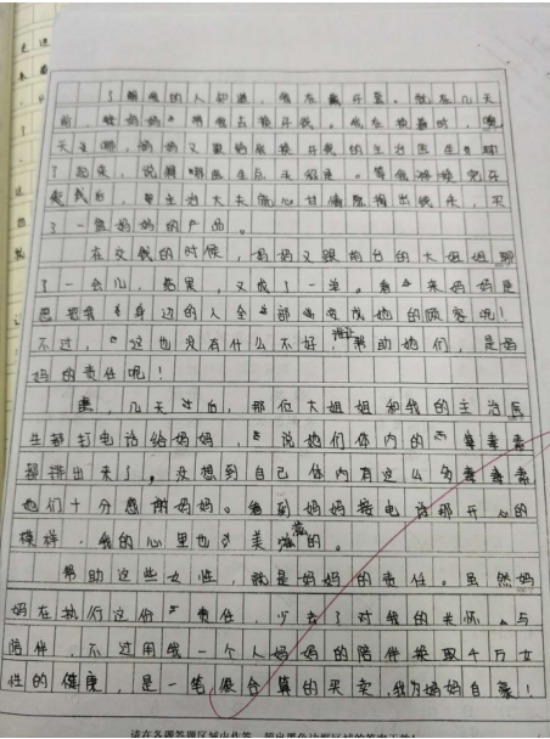 了解我的人知道，我在戴牙套。就在几天
前，我妈妈带我去换牙线。我在换着时，聊
天呢，妈妈又跟给我换牙线的主治医生聊
了起来，说聊哪些生点。等我换完牙
套我后，主治大夫就心甘情愿掏出钱来，买
了一盒妈妈的产品。
在交钱的时候，妈妈又跟前台的大姐姐聊
了一会儿，结果，又成了一单。看来妈妈是
把我身边的人全部变成她的顾客呢！
不过，这也没有什么不好，帮助她们，是妈
妈的责任呢！
几天过后，那位大姐姐和我的主治医
生都打电话给妈妈，说她们体内的毒素
都排出来了，没想到自己体内有这么多毒素
她们十分感谢妈妈。看到妈妈接电话那开心的
模样，我的心里也美滋滋的。
帮助这些女性，就是妈妈的责任。虽然妈
妈在执行这份责任，少去了对我的关怀与
陪伴，不过用我一个人妈妈的陪伴换取千万女
性的健康，是一笔很合算的买卖，我为妈妈自豪！
请在各题答题区域内作答，超出黑色边框区域的答案无效！